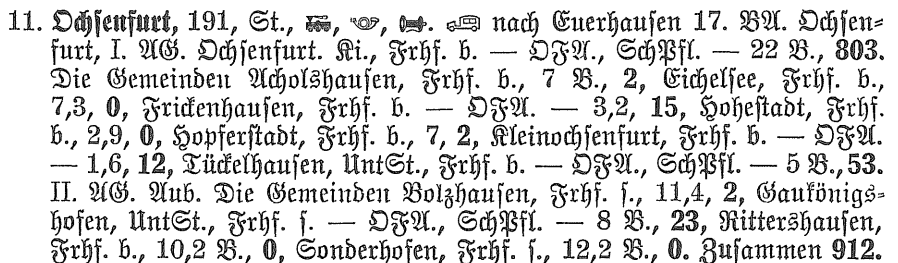 11. Ochsenfurt, 191, St., nach Euerhausen 17. BA. Ochsen=
furt, I. AG. Ochsenfurt. Ki., Frhf. b. — OFA., SchPfl. — 22 B., 803.
Die Gemeinden Acholshausen, Frhf. b., 7 B., 2, Eichelsee, Frhf. b.,
7,3, 0, Frickenhausen, Frhf. b. — OFA. — 3,2, 15, Hohestadt, Frhf.
b., 2,9, 0, Hopferstadt, Frhf. b., 7, 2, Kleinochsenfurt, Frhf. b. — OFA.
— 1,6, 12, Tückelhausen, UntSt., Frhf. b. — OFA., SchPfl. — 5 B., 53.
II. AG. Aub. Die Gemeinden Bolzhausen, Frhf. s., 11,4, 2, Gaukönigs=
hofen, UntSt., Frhf. s. — OFA., SchPfl. — 8 B., 23, Rittershausen,
Frhf. b., 10,2 B., 0, Sonderhofen, Frhf. s., 12,2 B., 0. Zusammen 912.